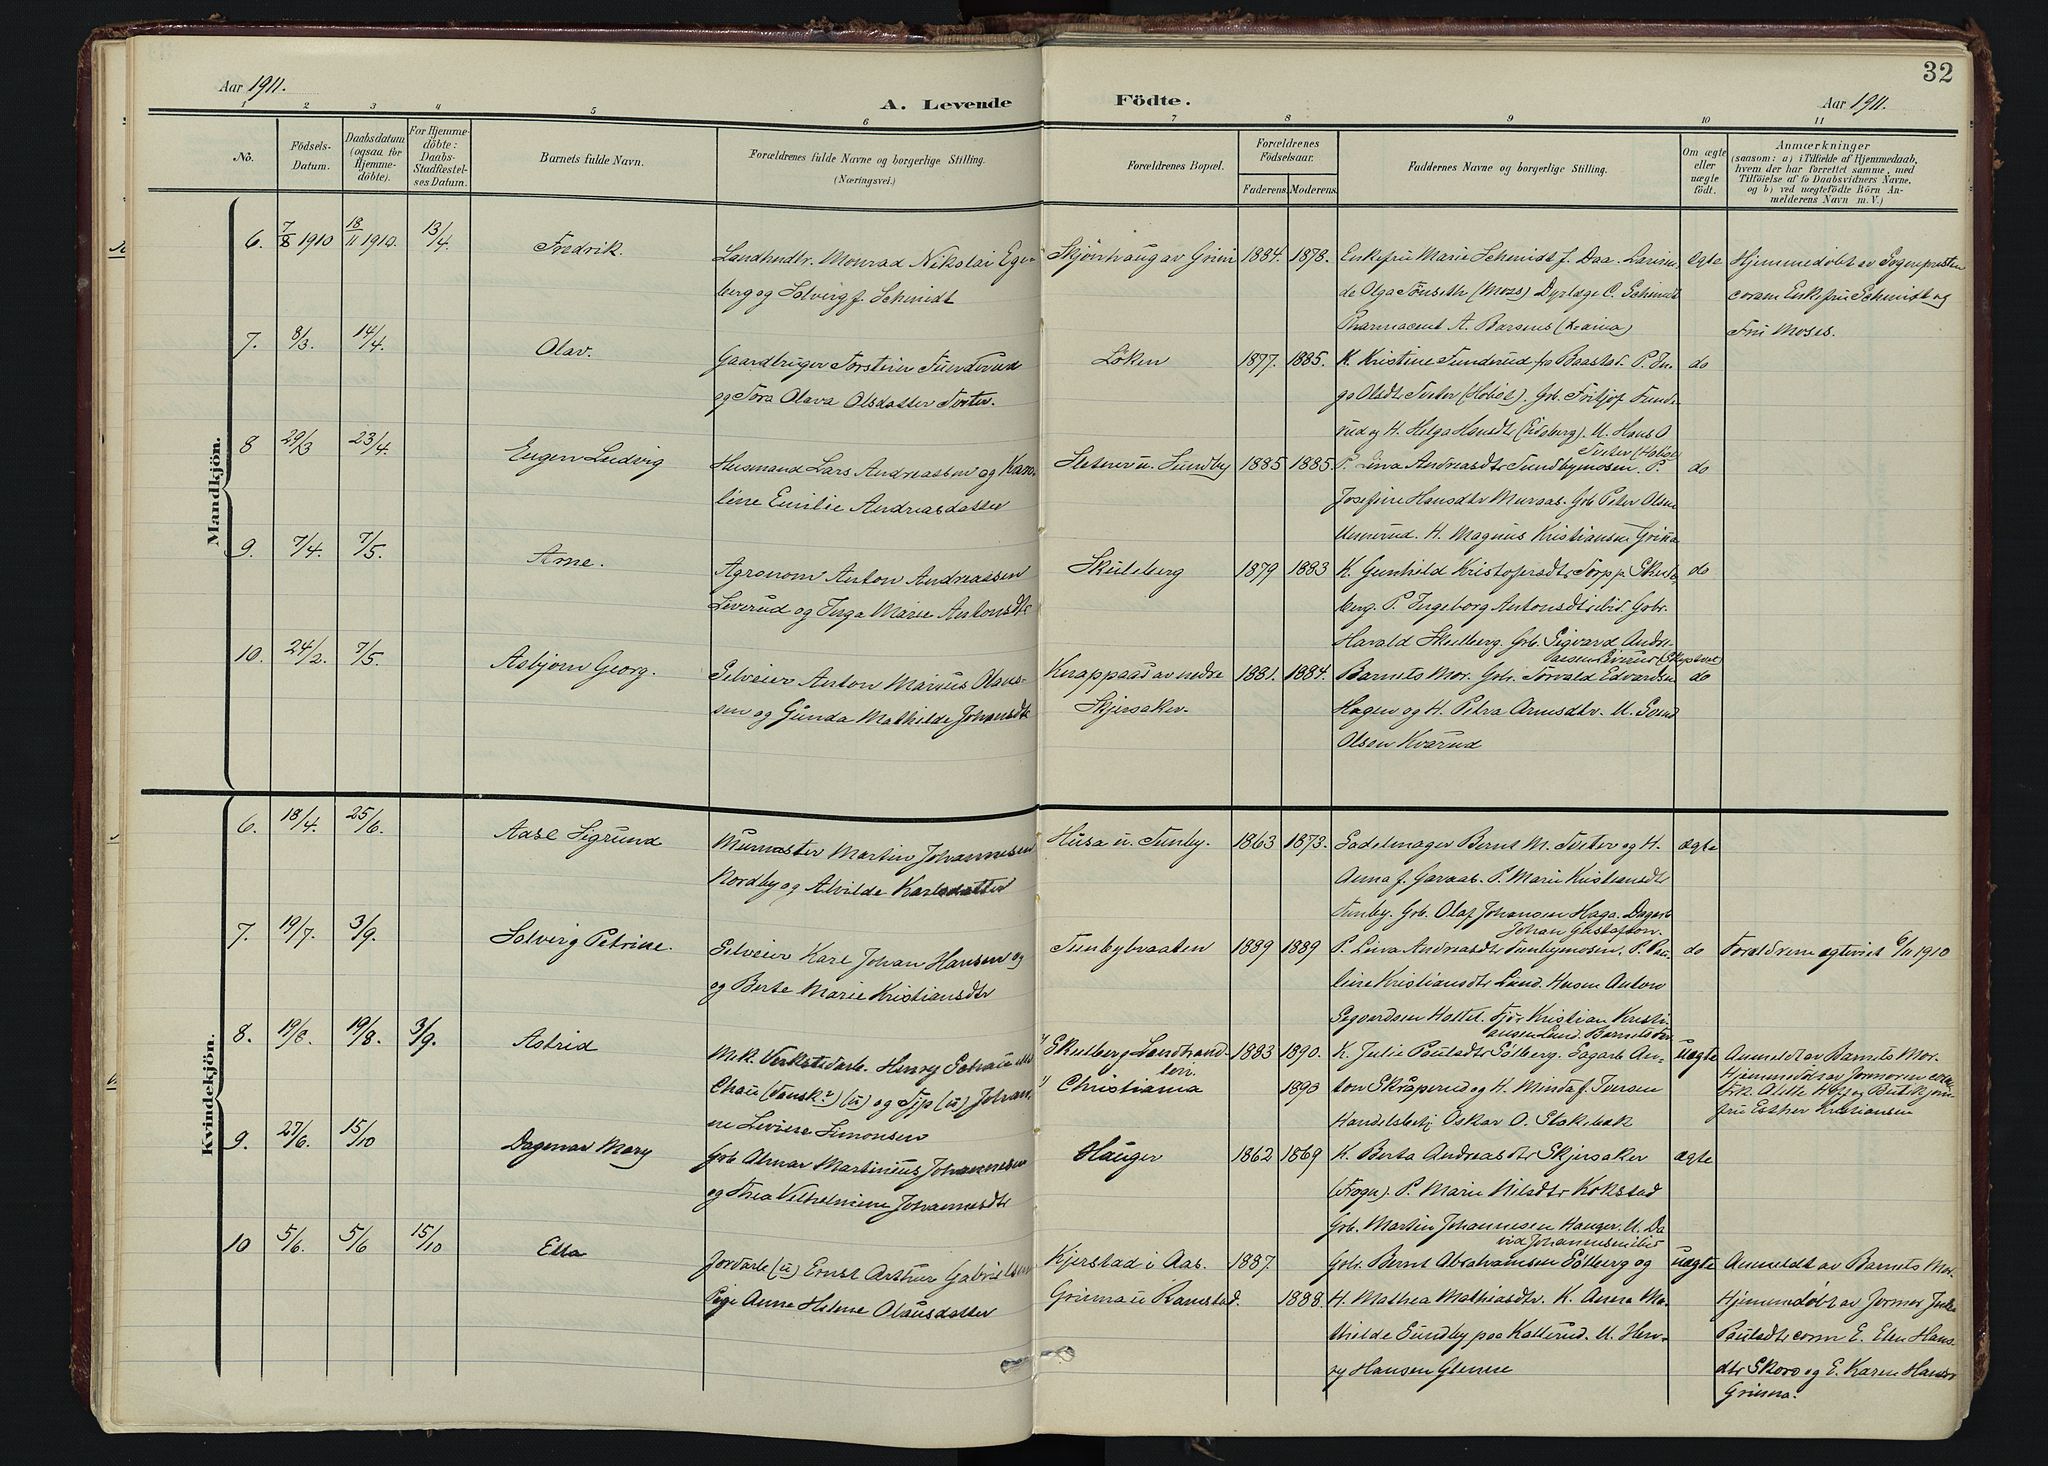 32
Aar 1911.
A. Levende Födte.
Aar 1911.
1 2 3 4 5 6 7 8 9 10 11
No.
Födsels-
Datum.
Daabsdatum
(ogsaa for
Hjemme-
döbte).
For Hjemme-
döbte:
Daabs-
Stadfæstel-
ses Datum.
Barnets fulde Navn.
Forældrenes fulde Navne og borgerlige Stilling.
(Næringsvei.)
Forældrenes Bopæl.
Forældrenes
Födselsaar.
Faderens. Moderens.
Faddernes Navne og borgerlige Stilling.
Om ægte
eller
uægte
födt.
Anmærkninger
(saasom: a) i Tilfælde af Hjemmedaab,
hvem der har forrettet samme, med
Tilföielse af to Daabsvidners Navne,
og b) ved uægtefödte Börn An-
melderens Navn m. V.)
Mandkjön.
6. 7/8 1910 18/11 1910. 13/4. Fredrik.
Landhandlr. Monrad Nikolai Ege-
berg og Solveig f. Schmidt
Skjønhaug av Grini 1884. 1878.
Enkefru Marie Schmidt f. Daa.
de Olga Tønseth (Moss) Dyrlæge C. Schmidt
Pharmaceut A. Barsens
egte
Hjemmedøbt av Sogneprästen
coram Enkefru Schmidt og
Fru Moses.
7. 8/3. 14/4. Olav.
Gaardbruger Torstein Tunderud
og Tora Olava Olsdatter Tveter.
Løken 1877. 1885.
K. Kristine Tunderud fra Baastad. P. In-
ga Olsdtr Tveter (Hobøl). Grb. Fritjof Tunde-
rud og H. Helga Hansdtr (Eidsberg). U. Hans O
Tveter (Hobøl)
do
8 29/3 23/4. Eugen Ludvig
Husmand Lars Andreassen og Karo-
line Emilie Andreasdatter
Sletner u. Sundby 1885 1885.
P. Lina Andreasdtr Sundbymosen. P.
Josefine Hansdtr Muraas. Grb Peter Olsen
Unnerud. H. Magnus Kristiansen Grina
do
9. 7/4. 7/5. Arne.
Agronom Anton Andreassen
Leverud og Inga Marie Antonsdtr
Skulberg 1879 1883
K. Gunhild Kristofersdtr Torp p. Skul-
berg. P. Ingeborg Antonsdtr ibid. Gbr.
Harald Skulberg. Grb. Sigvard Andre-
assen Leverud (Skiptvet)
do
10. 24/2. 7/5. Asbjørn Georg.
Selveier Anton Marius Olaus-
sen og Gunda Mathilde Johansdtr
Knappaas av nedre
Skjersaker.
1881. 1884.
Barnets Mor. Gbr. Torvald Edvardsen
Hagen og H. Petra Arnesdtr. U. Svend
Olsen Kvarud
do
Kvindekjön.
6. 18/4. 25/6. Aase Sigrund
Murmester Martin Johannesen
Nordby og Alvilde Karlsdatter
Husa u. Tunby. 1863 1873.
Sadelmager Bernt M. Tveter og H.
Anna f. Garaas. P. Marie Kristiansdtr
Tunby. Grb. Olaf Johansen Haga. Dagarb
Johan Gustafson.
ægte
7. 19/7. 3/9. Solveig Petrine.
Selveier Karl Johan Hansen og
og Berte Marie Kristiansdtr
Tunbybraaten 1889 1889
P. Lina Andreasdtr Tunbymosen. P. Pau-
line Kristiansdtr Lund. Husm Anton
Segvardsen Haltet. Fjør Kristian Kristi-
ansen Lund. Barnets Far
do
Forældrene ægteviet 6/11 1910
8. 19/8. 19/8. 3/9. Astrid
Mek. Verkstedarb. Henry
(dansk?) (u) og Tjp (u) Johan-
ne Simonsen
1) Skulberg Landstrand-
ten
1883 1890.
2) Christiania
1890
K. Julie Paulsdtr Sølberg. Sagarb An-
ton Skråperud og H. Minda f. Iversen
Handelsbetj Oskar O. Stokebak
uægte
Anmeldt av Barnets Mor.
Hjemmedøbt av Jormoren coram
Frk. Alette Hoff og
fru Esther Kristiansen
9. 27/6. 15/10 Dagmar Mary
Grb Almar Martinius Johannesen
og Thea Vilhelmine Johannesdtr
Hauger 1862 1869
K. Berta Andreasdtr Skjersaker
(Trøgs). P. Marie Nilsdtr Kokstad
Grb. Martin Johannesen Hauger. U. Da-
vid Johannesen ibid
ægte
10 5/6. 5/6 15/10 Ella
Jordarb (u) Ernst Arthur Gabrielsen
Pige Anne Helene Olausdatter
Kjerstad i Aas. 1887.
Grinna u Ramstad. 1888.
Gbr. Bernt Abrahamsen Sølberg og
H. Mathea Mathiasdtr. K. Anna Ma-
thilde Sundby paa Katterud. U. Hen-
ry Hansen Glenne
uægte
Anmeldt av Barnets Mor.
Hjemmedøbt av Jormor Julie
Paulsdtr coram E. Elen Hans-
dtr Skoro og E. Karen Hansdtr
Grinna.